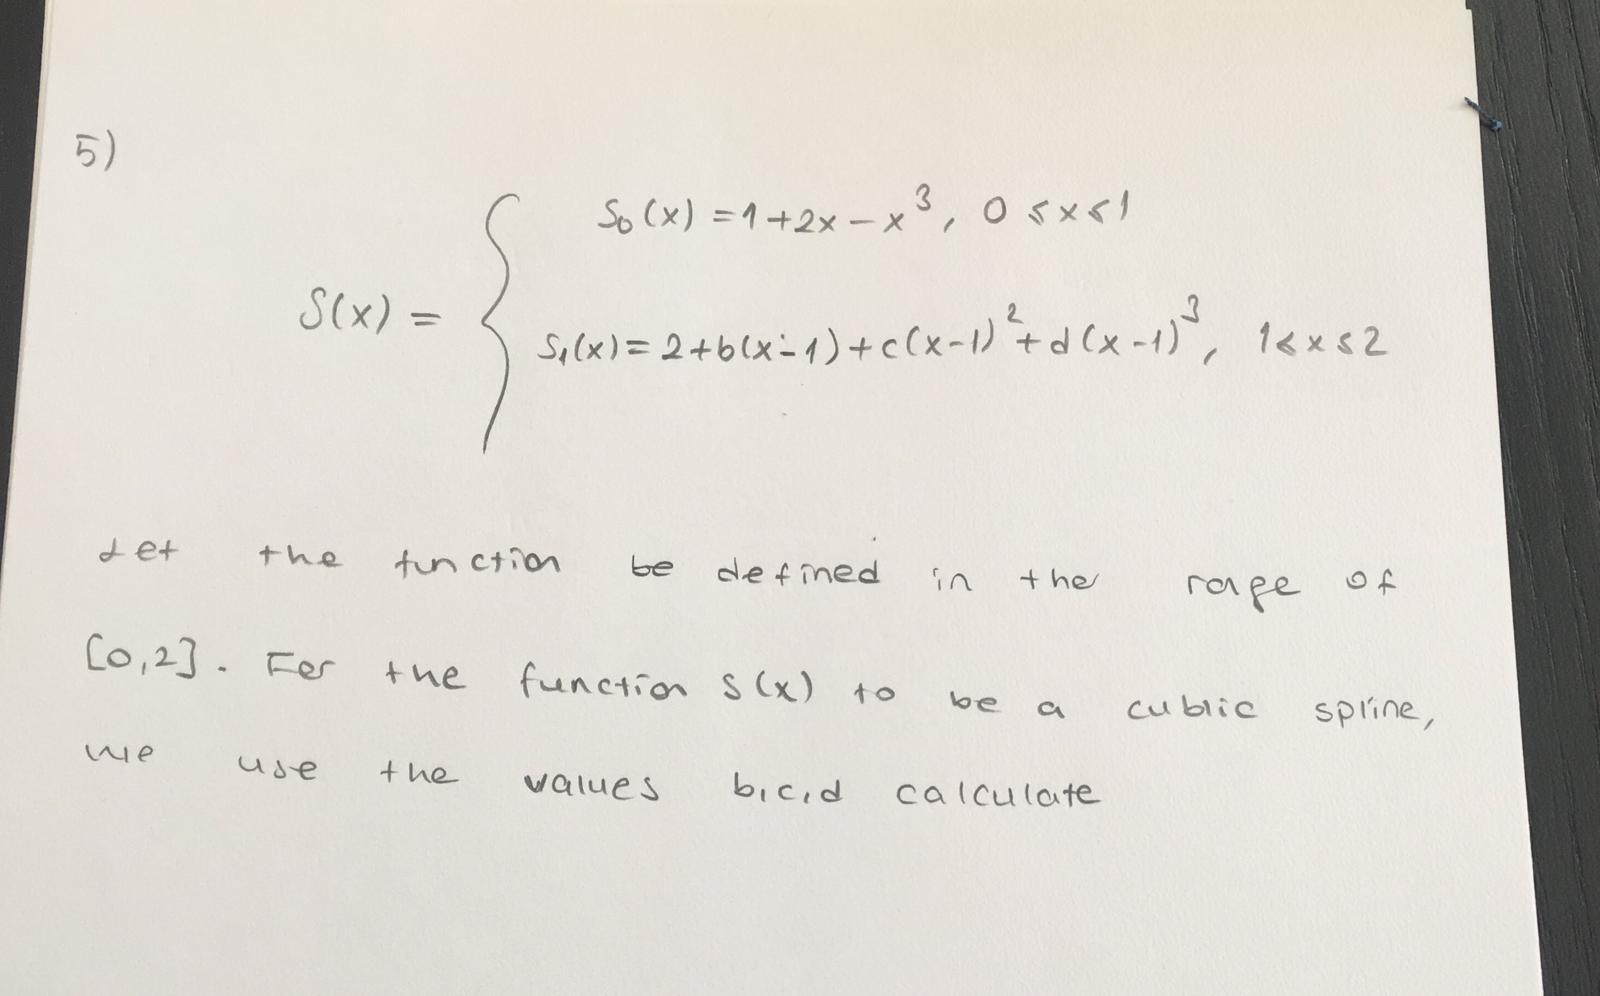 5)
S₀(x) = 1+2x-x³, 0≤x≤1
S(x) =
S₁(x) = 2+b(x-1)+c(x-1)²+d(x-1)³, 1≤x≤2
Let the function be defined in the range of
[0,2]. For the function S(x) to be a cubic spline,
we use the values b,c,d calculate